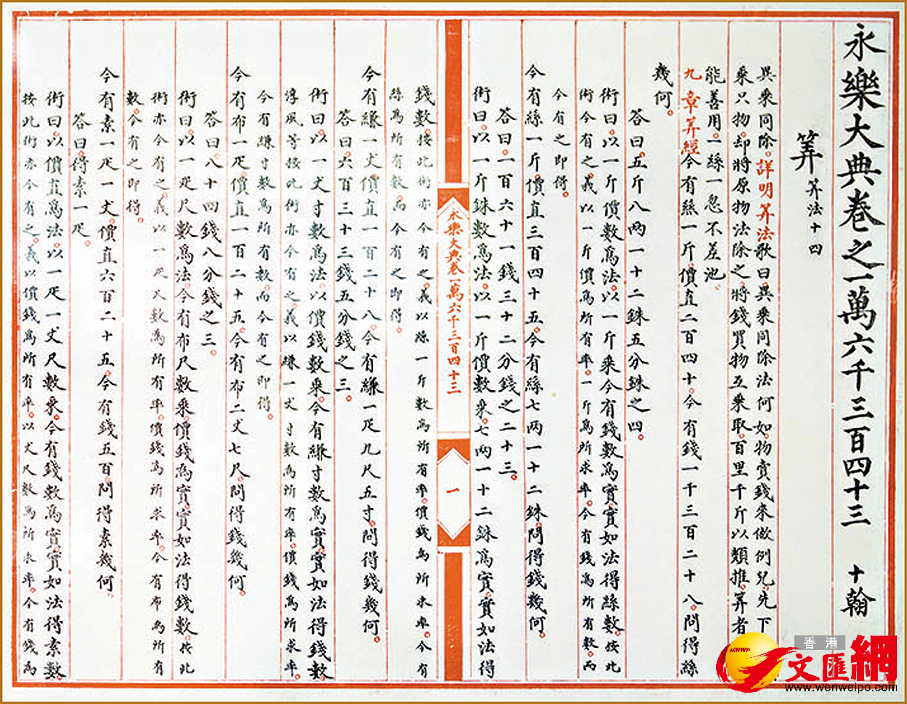 永樂大典卷之一萬六千三百四十三 十翰
筭 筭法十四
異乘同除。詳明筭法歌曰異乘同除法何如。物賣錢來做例兒。先下
乘只物。却將原物法除之。將錢買物互乘取。百里千斤以類推。筭者
能善用。二絲一忽不差池。
九章筭經 今有絲一斤。價直二百四十。今有錢一千三百二十八。問得絲
幾何。
答曰。五斤八兩一十二銖五分銖之四。
術曰。以一斤價數爲法。以一斤乘今有錢數爲實。實如法得絲數。按此
術今有之義。以一斤價爲所有率。一斤爲所求率。今有錢爲所有數。而
今有之即得。
今有絲一斤。價直三百四十五。今有絲七兩一十二銖。問得錢幾何。
答曰。一百六十一錢三十二分錢之二十三。
術曰。以一斤銖數爲法。以一斤價數乘七兩一十二銖爲實。實如法得
永樂大典卷一萬六千三百四十三
一
錢數。按此術亦今有之義。以絲一斤數爲所有率。價錢爲所求率。今有
絲爲所有數。而今有之即得。
今有縑一丈。價直一百二十八。今有縑一疋九尺五寸。問得錢幾何。
答曰。六百三十三錢五分錢之三。
術曰。以一丈寸數爲法。以價錢數乘今有縑寸數爲實。實如法得錢數
淳風等按此術亦今有之義。以縑一丈寸數爲所有率。價錢爲所求率。
今有縑寸數爲所有數。而今有之即得。
今有布一疋。價直一百二十五。今有布二丈七尺。問得錢幾何。
答曰。八十四錢八分錢之三。
術曰。以一疋尺數爲法。今有布尺數乘價錢爲實。實如法得錢數。按此
術亦今有之義。以一疋尺數爲所有率。價錢爲所求率。今有布爲所有
數。今有之即得。
今有素一疋一丈。價直六百二十五。今有錢五百。問得素幾何。
答曰。得素一疋。
術曰。以價直爲法。以一疋一丈尺數乘今有錢數爲實。實如法得素數
按此術亦今有之義。以價錢爲所有率。以丈尺數爲所求率。今有錢爲
香港
文匯網
www.wenweipo.com